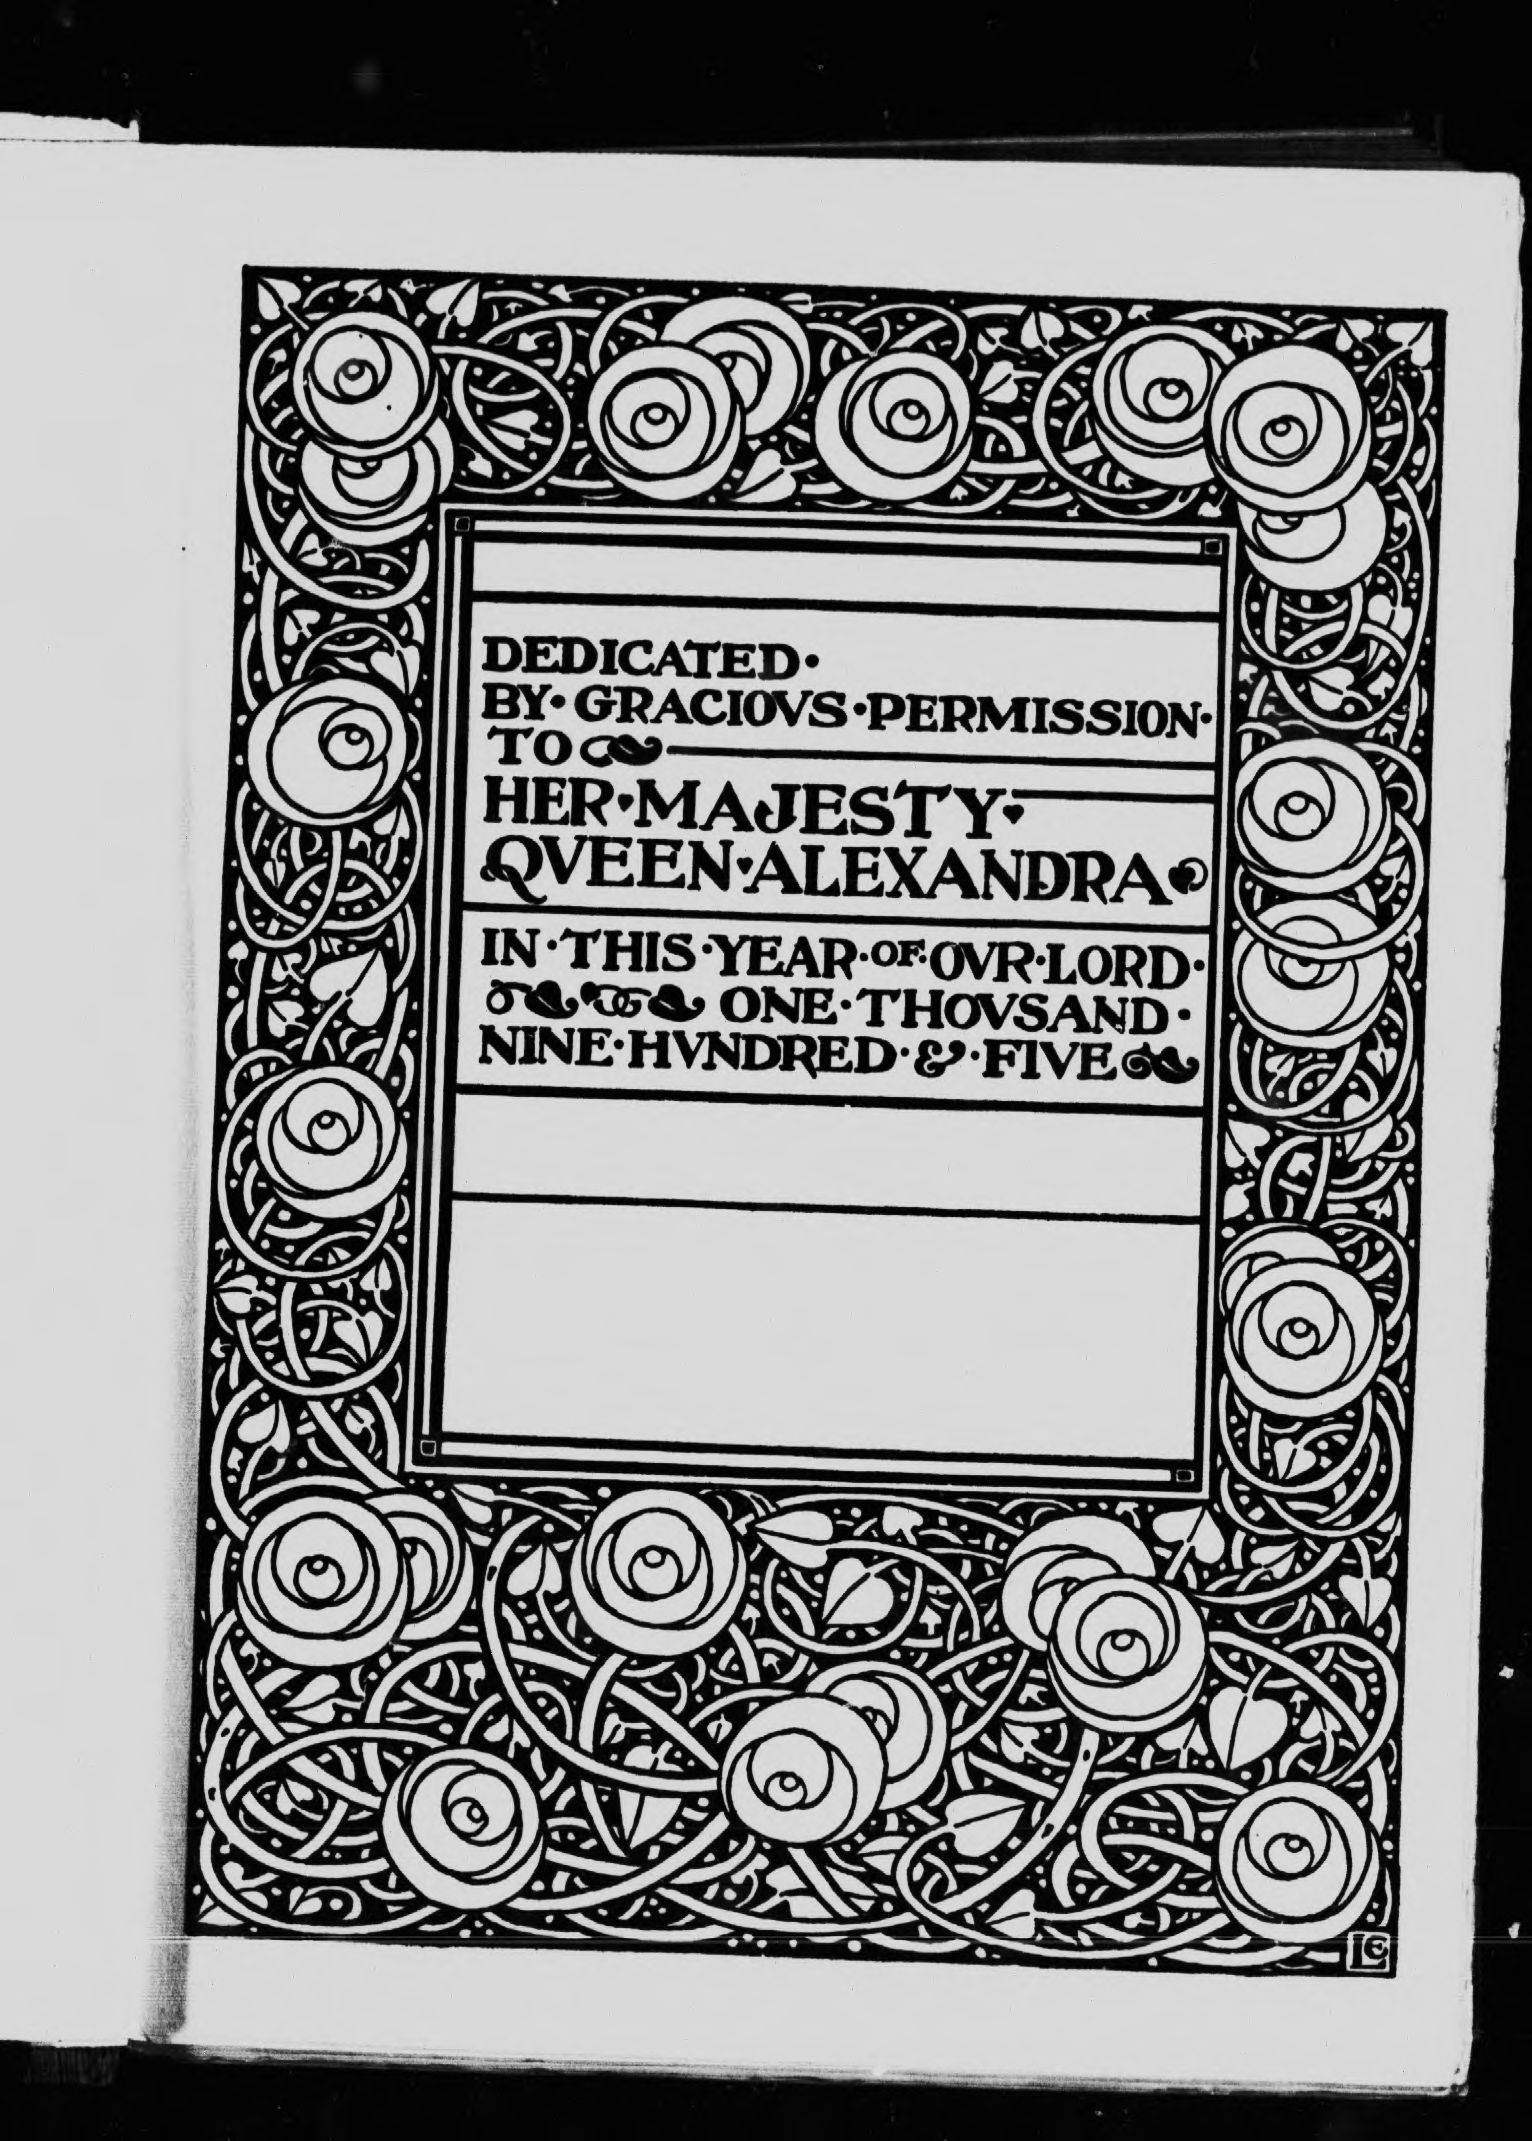 DEDICATED·
BY· GRACIOVS·PERMISSION·
TO
HER·MAJESTY·
QVEEN·ALEXANDRA
IN·THIS·YEAR·OF·OVR·LORD·
ONE·THOVSAND·
NINE·HVNDRED·&·FIVE
LE